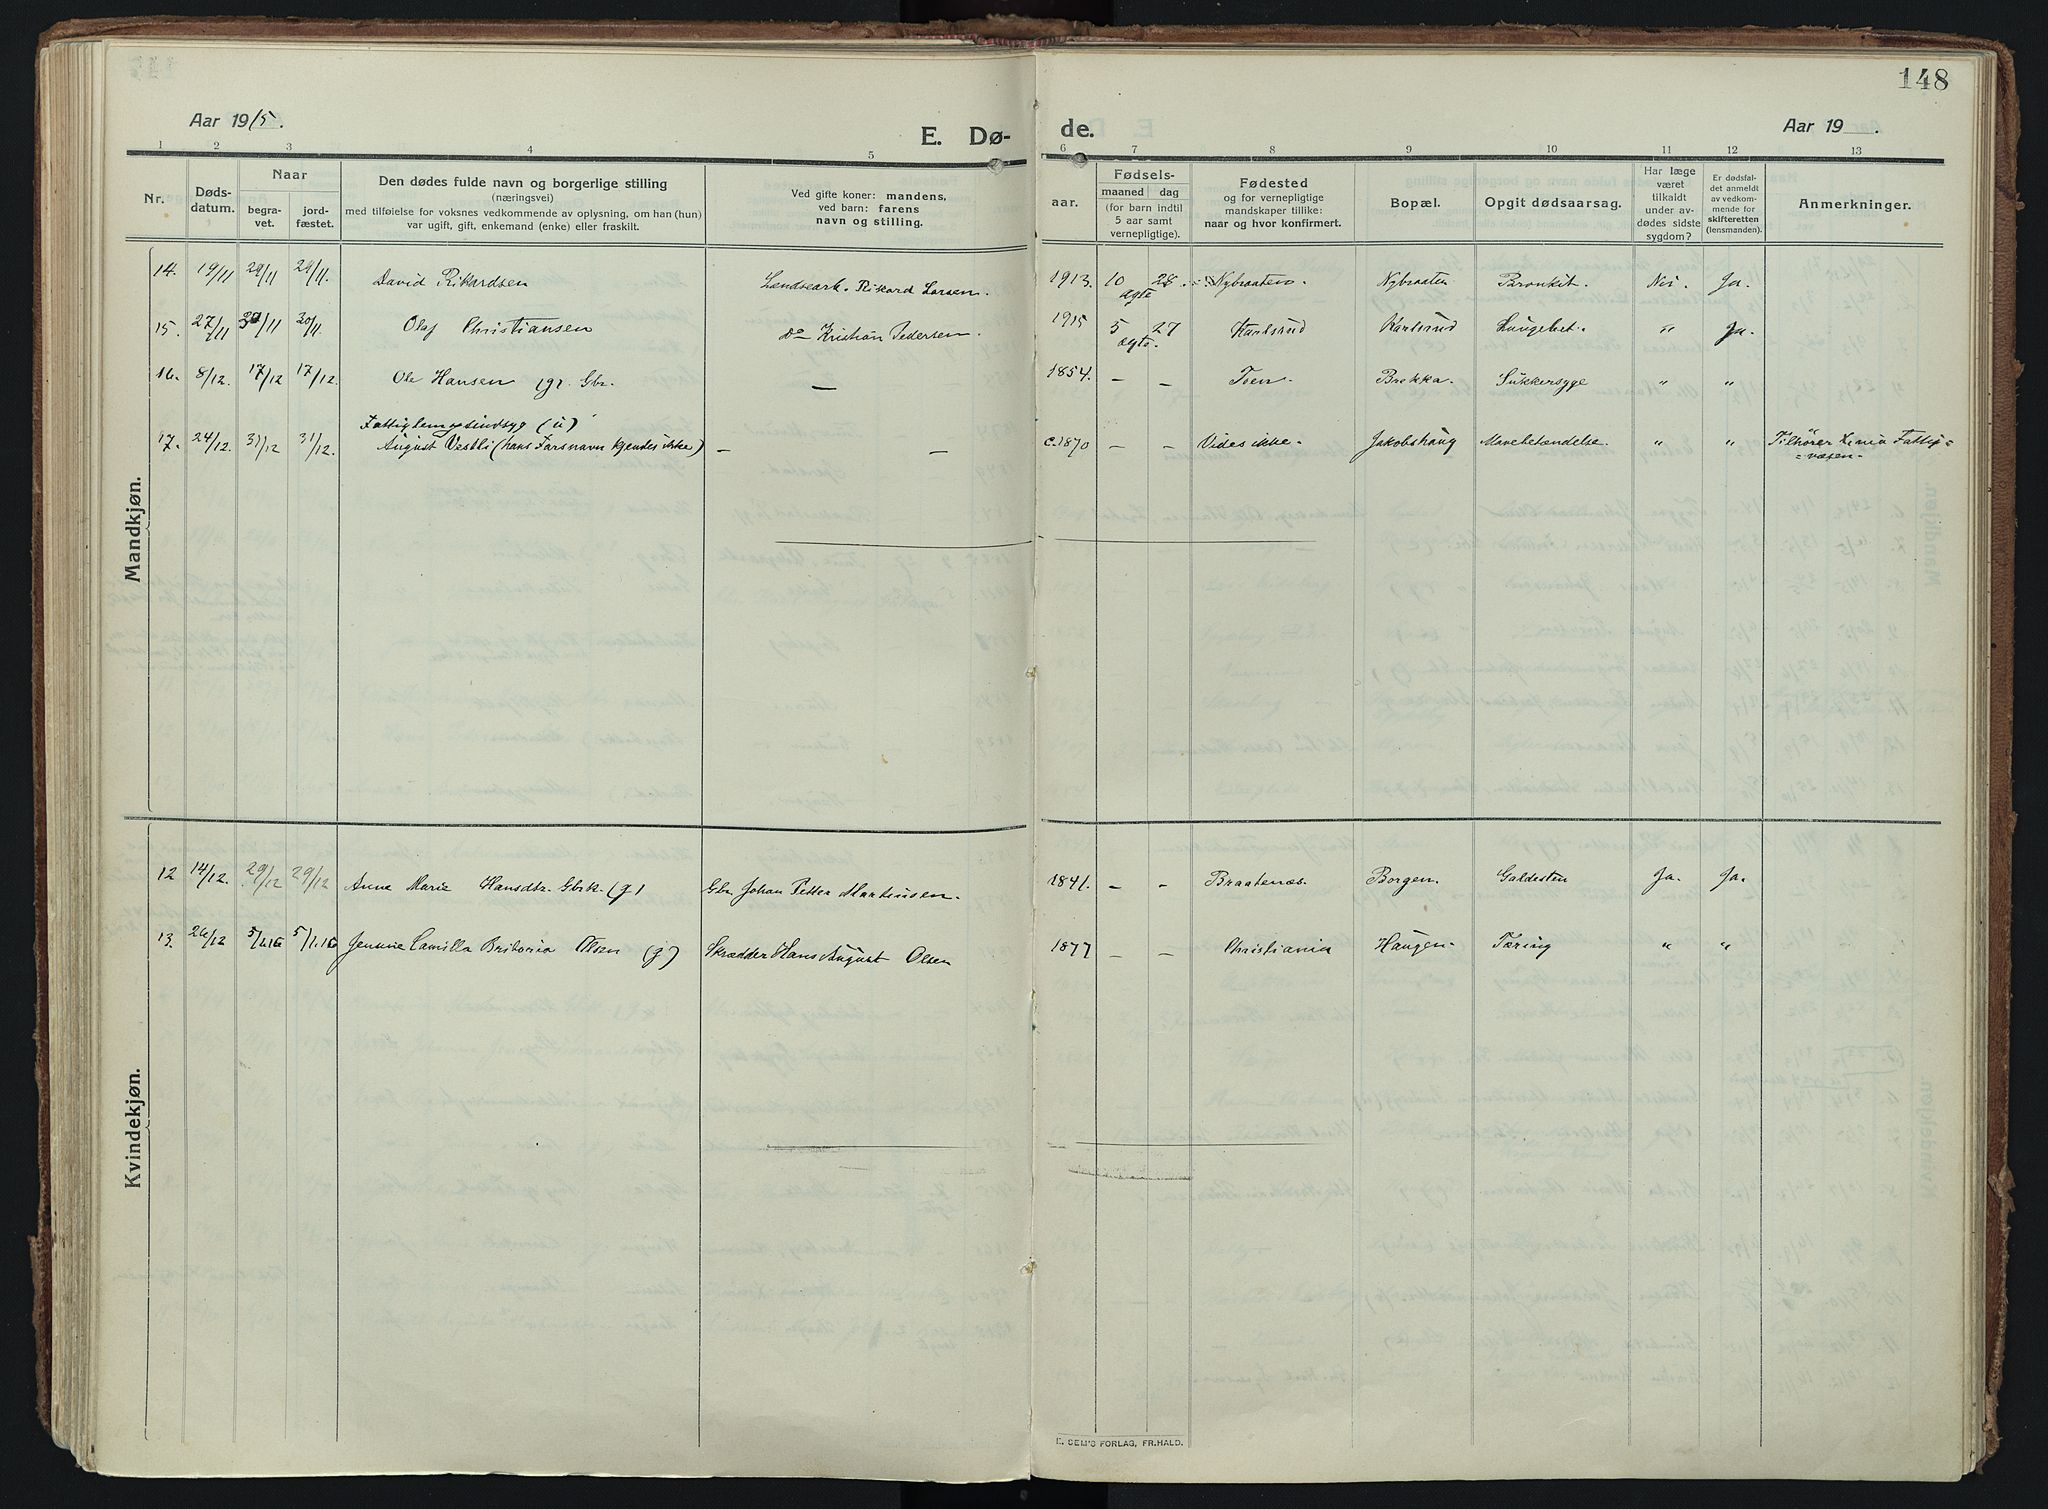 148
Aar 1915.
E. Dø-
de.
Aar 19 .
1 2 3 4 5 6 7 8 9 10 11 12 13
Nr.
Døds-
datum.
Naar
begra-
vet.
jord-
fæstet.
Den dødes fulde navn og borgerlige stilling
(næringsvei)
med tilføielse for voksnes vedkommende av oplysning, om han (hun)
var ugift, gift, enkemand (enke) eller fraskilt.
Ved gifte koner: mandens,
ved barn: farens
navn og stilling.
Fødsels-
aar.
maaned
dag
(for barn indtil
5 aar samt
vernepligtige).
Fødested
og for vernepligtige
mandskaper tillike:
naar og hvor konfirmert.
Bopæl.
Opgit dødsaarsag.
Har læge
været
tilkaldt
under av-
dødes sidste
sygdom?
Er dødsfal-
det anmeldt
av vedkom-
mende for
skifteretten
(lensmanden).
Anmerkninger.
Mandkjøn.
14. 19/11 29/11 29/11. David Rikardsen Landsearb. Rikard Larsen. 1913. 10 28 Nybraaten Nybraaten Bronkit. Nei Ja.
ægte
15. 27/11 30/11 30/11 Olaf Christiansen do Kristian Pedersen. 1915 5 27 Karlsrud Karlsrud Lungebet. " Ja.
ægte.
16. 8/12. 17/12 17/12. Ole Hansen (g). Gbr. — 1854. — — Toen. Brekka. Sukkersyge " "
Fattiglem sindsyg (u)
17. 24/12. 31/12 31/12. August Vestli (hans Farsnavn kjendes ikke) — — c.1870 — — Vides ikke. Jakobshaug Mavebetændelse. " " Tilhører Fattig=
=væsen.
Kvindekjøn.
12 14/12. 29/12 29/12 Anna Marie Hansdtr. Gbrk (g) Gbr. Johan Petter Martinusen. 1841. — — Braatenæs. Borgen. Galdesten Ja. Ja.
13. 26/12 5/1.16 5/1.16 Jennie Camilla Olsen (g) Skrædder Hans August Olsen 1877 — — Christiania Haugen. Tæring " "
E. SEM'S FORLAG, FR.HALD.